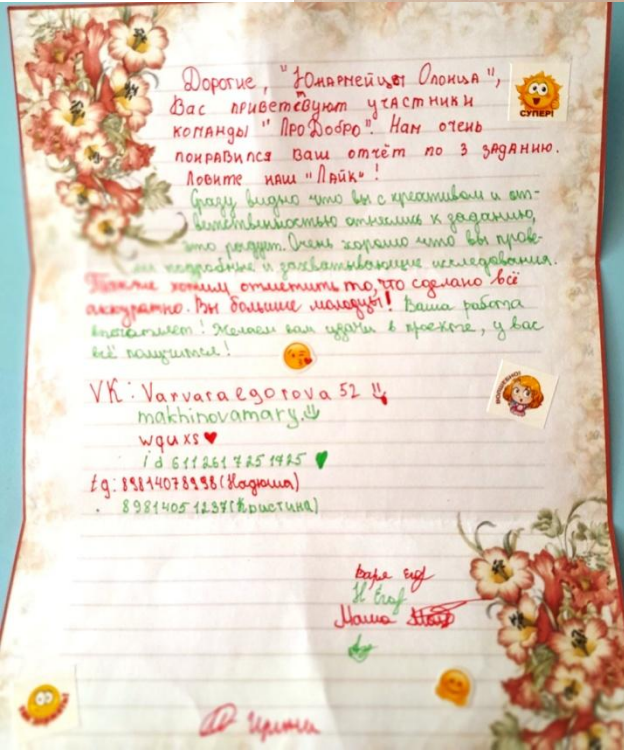 Дорогие, "Юнармейцы Олонца",
Вас приветствуют участники
команды "ПроДобро". Нам очень
понравился Ваш отчёт по 3 заданию.
Ловите наш "Лайк"!
СУПЕР!
Сразу видно что вы с креативом и от-
ветственностью отнеслись к заданию,
это радует. Очень хорошо что вы прове-
ли подробные и захватывающие исследования.
Также хотим отметить то, что сделано всё
аккуратно. Вы большие молодцы! Ваша работа
впечатляет! Желаем вам удачи в проекте, у вас
всё получится!
VK: Varvaraegorova52
makhinovamary.
wquxs
id 6112617251925
tg: 89814078998(Надюша)
89814051237(Кристина)
Варя
Н Егор
Маша
Ирина